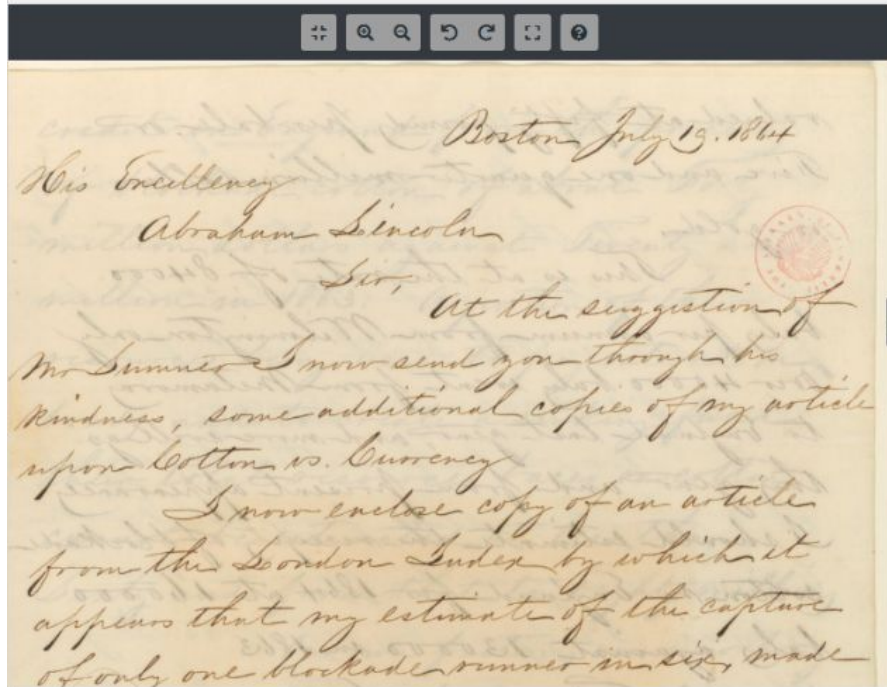 Boston July 19. 1864
His Excellency
Abraham Lincoln
Sir,
At the suggestion of
Mr Sumner I now send you through his
kindness, some additional copies of my article
upon Cotton vs. Currency
I now enclose copy of an article
from the London Index by which it
appears that my estimate of the capture
of only one blockade runner in six, made